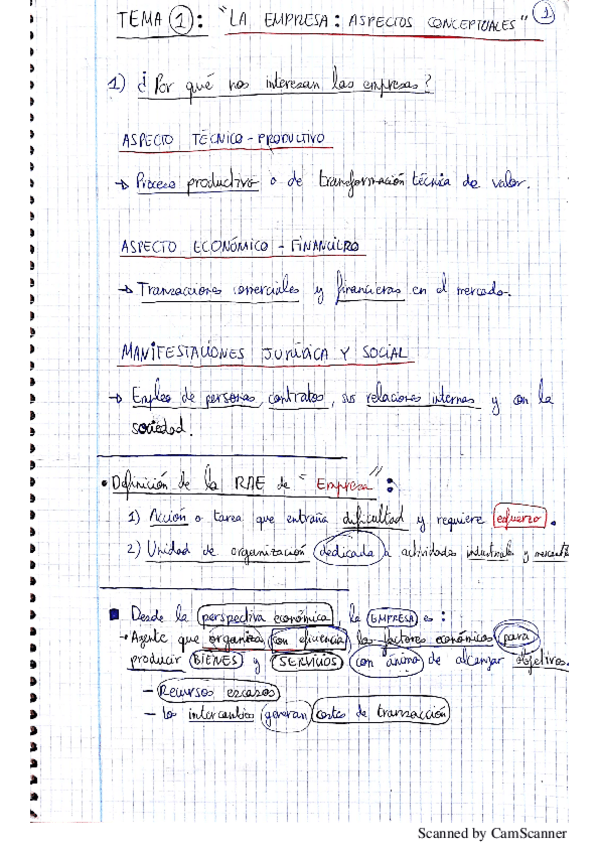 TEMA 1: "LA EMPRESA: ASPECTOS CONCEPTUALES" 1
1) ¿Por qué nos interesan las empresas?
ASPECTO TÉCNICO-PRODUCTIVO
→ Proceso productivo o de transformación técnica de valor.
ASPECTO ECONÓMICO-FINANCIERO
→ Transacciones comerciales y financieras en el mercado.
MANIFESTACIONES JURÍDICA Y SOCIAL
→ Empleo de personas, contratos, sus relaciones internas y con la
sociedad.
• Definición de la RAE de "Empresa":
1) Acción o tarea que entraña dificultad y requiere esfuerzo.
2) Unidad de organización dedicada a actividades industriales y
■ Desde la perspectiva económica, la EMPRESA es:
• Agente que organiza con eficiencia los factores económicos para
producir BIENES y SERVICIOS con ánimo de alcanzar objetivos.
- Recursos escasos
- Los intercambios generan costes de transacción
Scanned by CamScanner